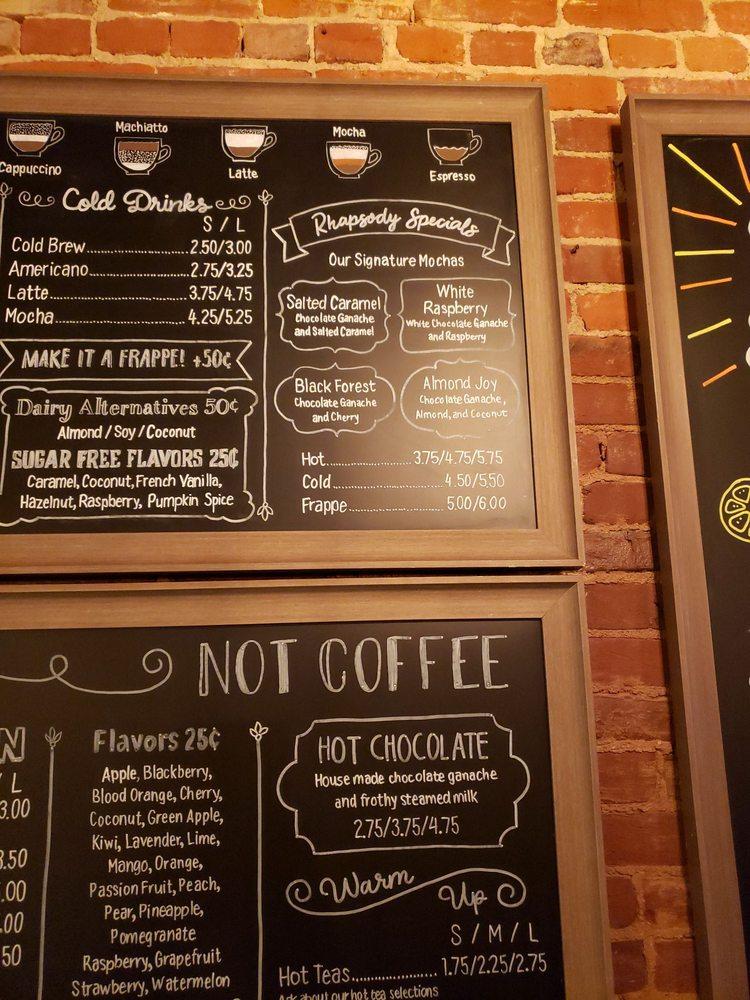 Cappuccino
Machiatto
Latte
Mocha
Espresso
Cold Drinks
S / L
Cold Brew 2.50/3.00
Americano 2.75/3.25
Latte 3.75/4.75
Mocha 4.25/5.25
MAKE IT A FRAPPE! +50¢
Dairy Alternatives 50¢
Almond / Soy / Coconut
SUGAR FREE FLAVORS 25¢
Caramel, Coconut, French Vanilla,
Hazelnut, Raspberry, Pumpkin Spice
Rhapsody Specials
Our Signature Mochas
Salted Caramel
Chocolate Ganache
and Salted Caramel
White
Raspberry
White Chocolate Ganache
and Raspberry
Black Forest
Chocolate Ganache
and Cherry
Almond Joy
Chocolate Ganache,
Almond, and Coconut
Hot 3.75/4.75/5.75
Cold 4.50/5.50
Frappe 5.00/6.00
NOT COFFEE
N
/ L
3.00
3.50
.00
.00
.50
Flavors 25¢
Apple, Blackberry,
Blood Orange, Cherry,
Coconut, Green Apple,
Kiwi, Lavender, Lime,
Mango, Orange,
Passion Fruit, Peach,
Pear, Pineapple,
Pomegranate
Raspberry, Grapefruit
Strawberry, Watermelon
HOT CHOCOLATE
House made chocolate ganache
and frothy steamed milk
2.75/3.75/4.75
Warm Up
S / M / L
Hot Teas 1.75/2.25/2.75
Ask about our hot tea selections